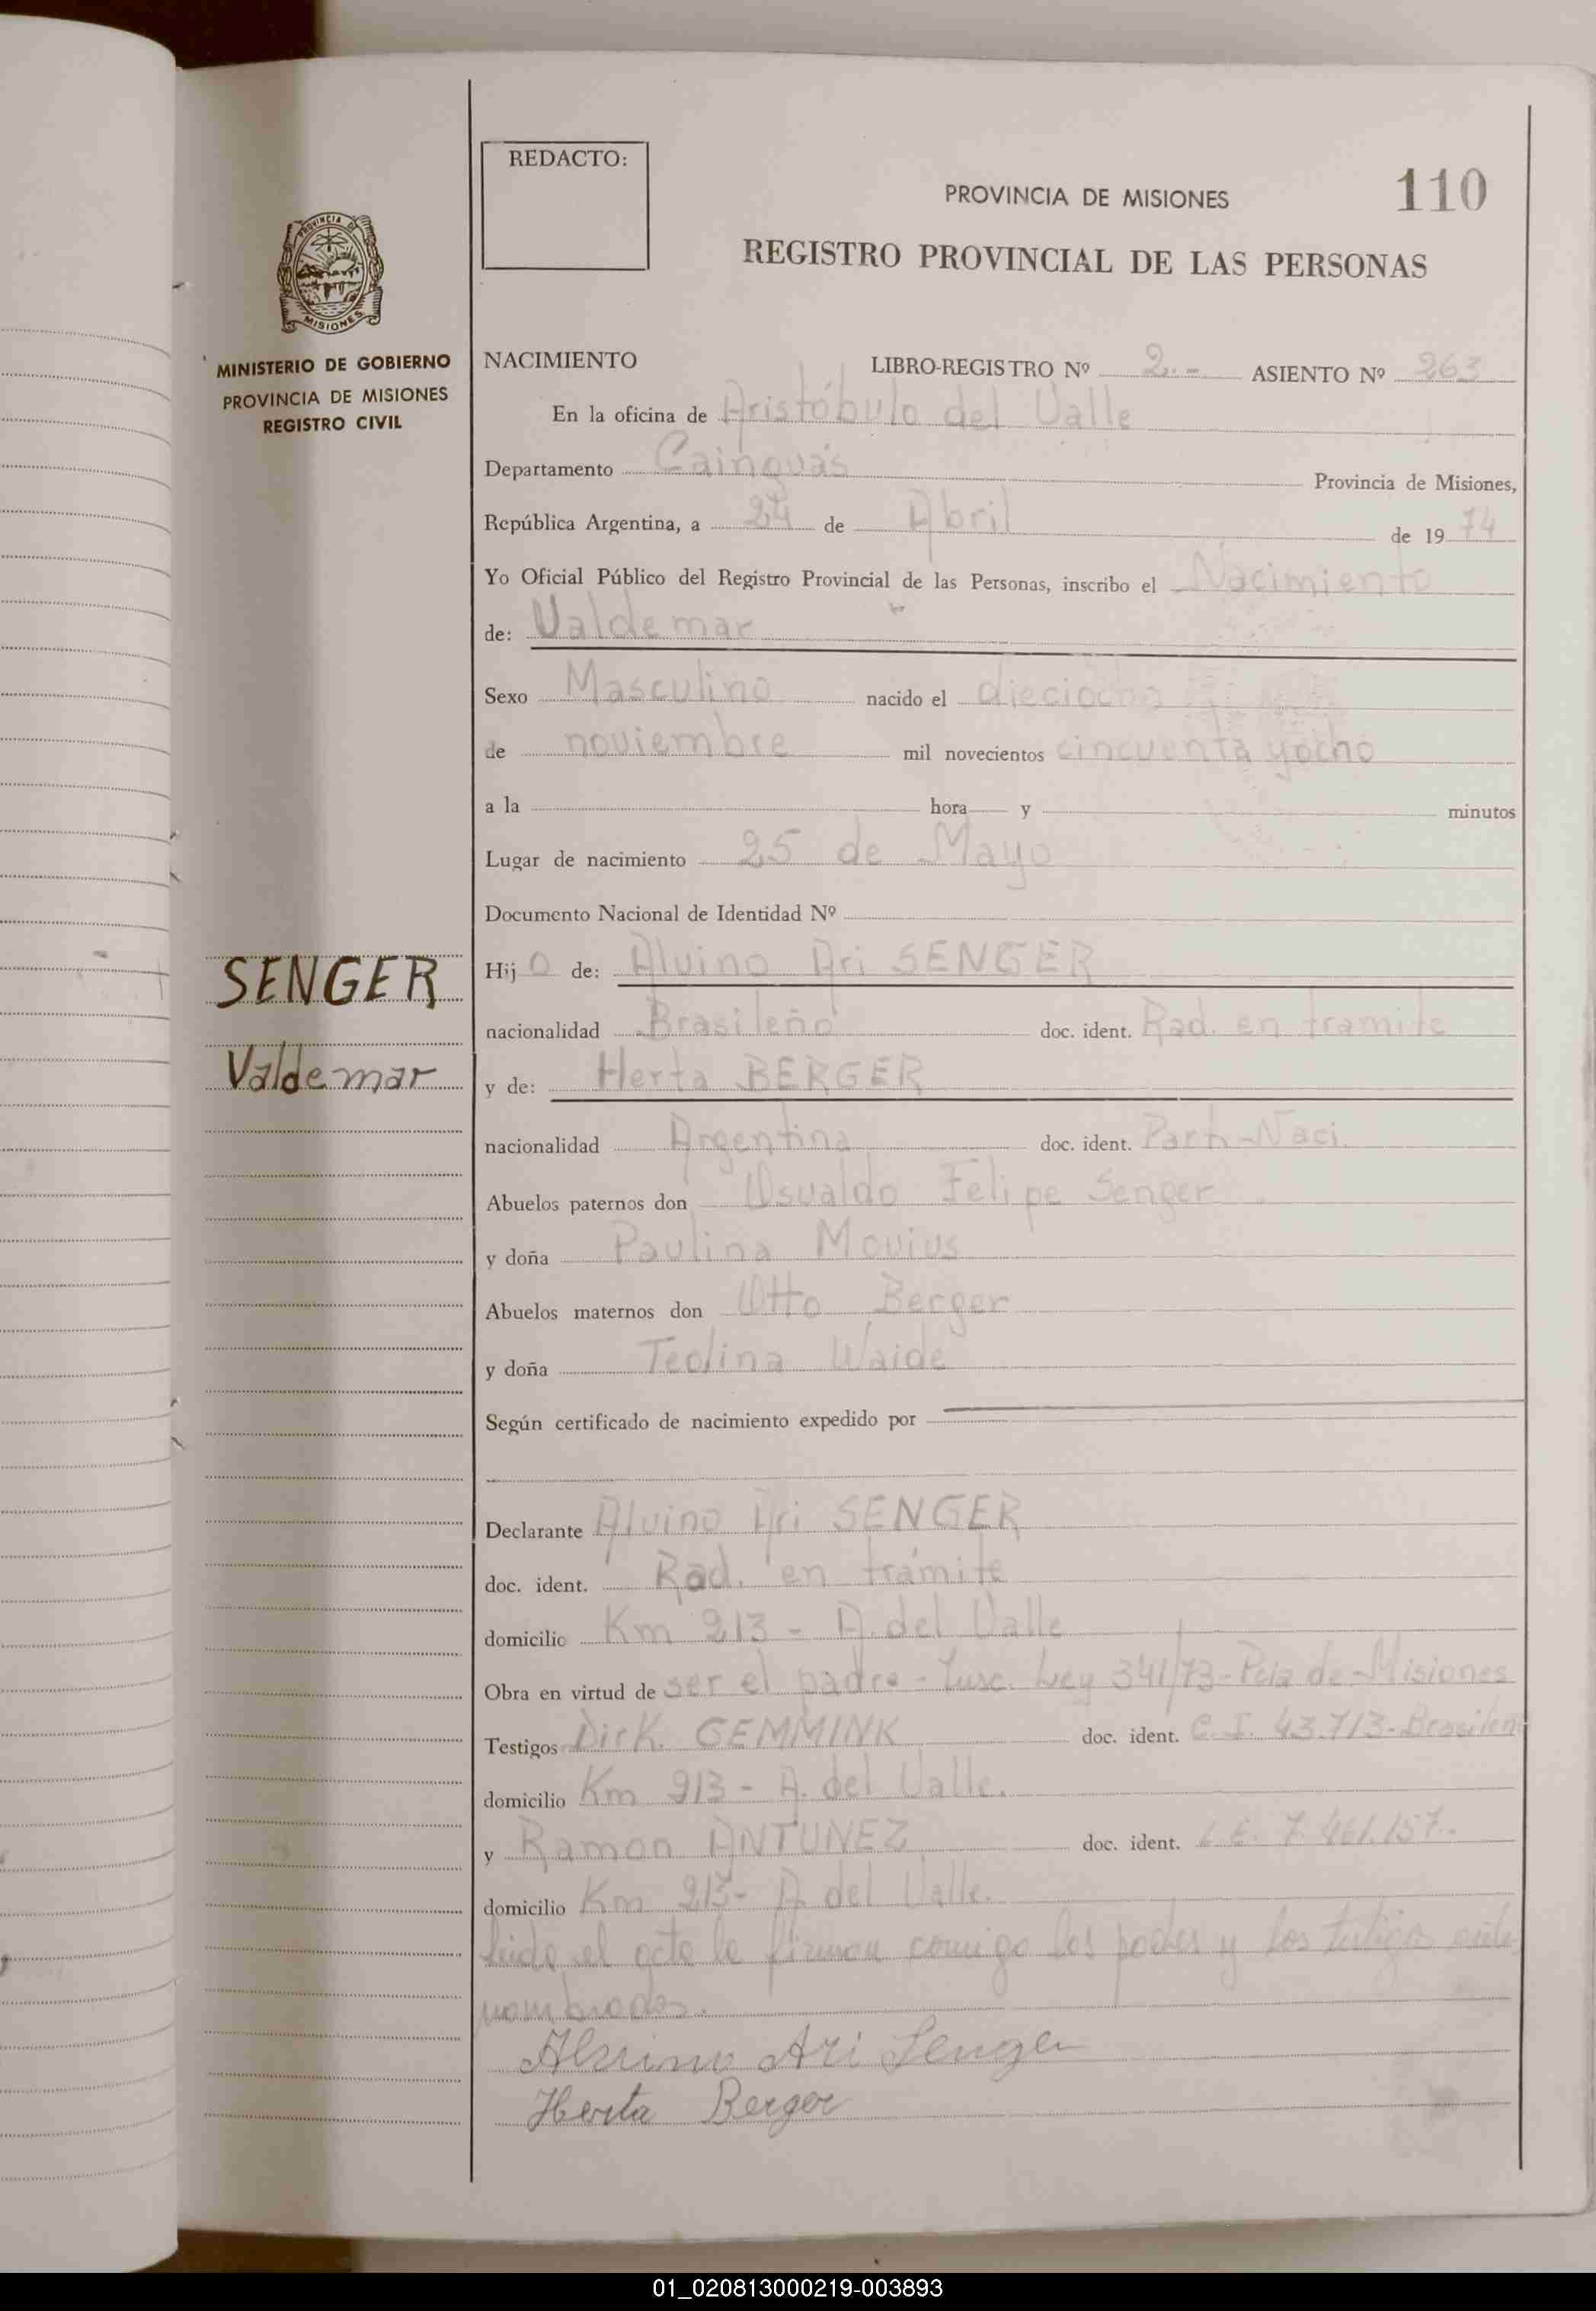 REDACTO:
PROVINCIA DE MISIONES
110
REGISTRO PROVINCIAL DE LAS PERSONAS
PROVINCIA DE
MISIONES
MINISTERIO DE GOBIERNO
PROVINCIA DE MISIONES
REGISTRO CIVIL
NACIMIENTO LIBRO-REGISTRO Nº 2.- ASIENTO Nº 263
En la oficina de Aristóbulo del Valle
Departamento Cainguás Provincia de Misiones,
República Argentina, a 24 de Abril de 1974
Yo Oficial Público del Registro Provincial de las Personas, inscribo el Nacimiento
de: Valdemar
Sexo Masculino nacido el dieciocho
de noviembre mil novecientos cincuenta yocho
a la hora y minutos
Lugar de nacimiento 25 de Mayo
Documento Nacional de Identidad Nº
SENGER
Valdemar
Hijo de: Alvino Ari SENGER
nacionalidad Brasileño doc. ident. Rad. en tramite
y de: Herta BERGER
nacionalidad Argentina doc. ident. Part-Naci.
Abuelos paternos don Osvaldo Felipe Senger
y doña Paulina Movius
Abuelos maternos don Otto Berger
y doña Teolina Waide
Según certificado de nacimiento expedido por
Declarante Alvino Ari SENGER
doc. ident. Rad. en trámite
domicilio Km 213 - A. del Valle
Obra en virtud de ser el padre - Insc. Ley 341/73 - Pcia de Misiones
Testigos Dirk. GEMMINK doc. ident. C.I. 43.713-Brasilen
domicilio Km 213 - A. del Valle.
y Ramon ANTUNEZ doc. ident. L.E. 7.461.157.-
domicilio Km 213- A. del Valle.
leido el acta la firman comigo los padres y los testigos ante
nombrados.
Alvino Ari Senger
Herta Berger
01_020813000219-003893